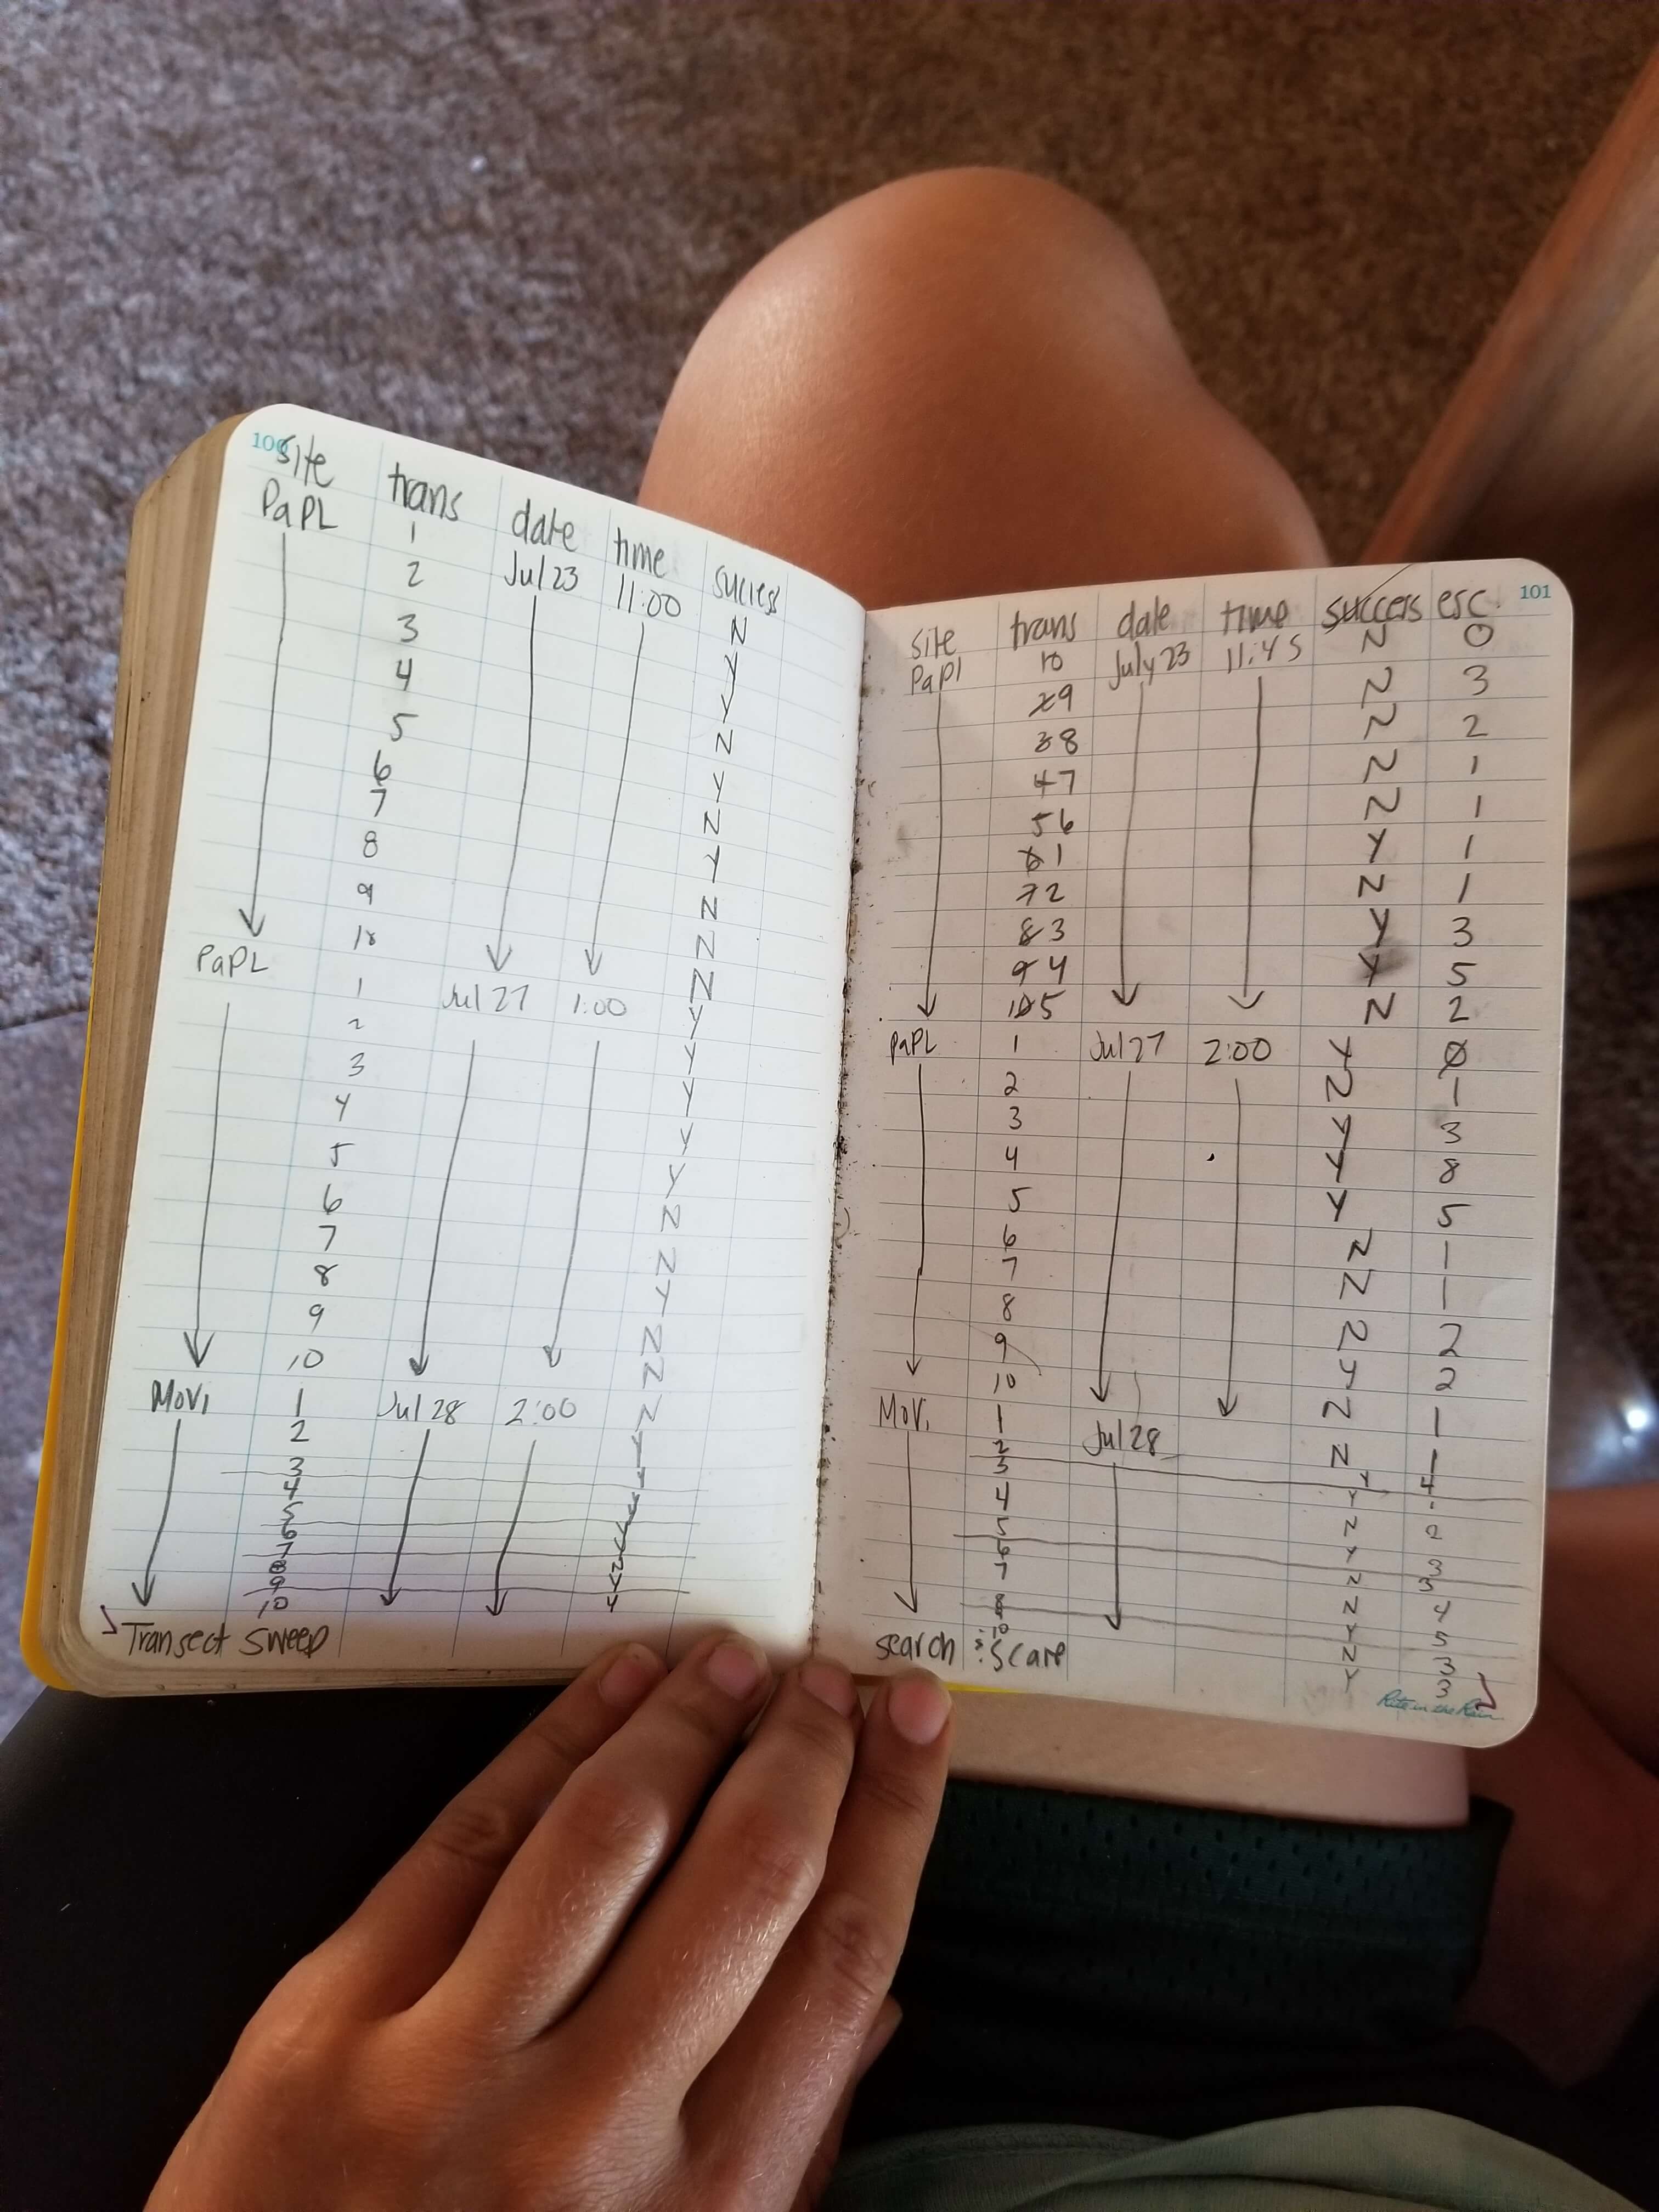 100
site trans date time success
PaPL 1 Jul 23 11:00 N
2 Y
3 Y
4 N
5 Y
6 N
7 Y
8 N
9 N
10 N
PaPL 1 Jul 27 1:00 Y
2 Y
3 Y
4 Y
5 Y
6 N
7 N
8 Y
9 N
10 N
Movi 1 Jul 28 2:00 N
2 Y
3
4
5
6
7
8
9
10
Transect Sweep
101
site trans date time success esc
PaPl 10 July 23 11:45 N 0
9 N 3
8 N 2
7 N 1
6 N 1
1 Y 1
2 N 1
3 Y 3
4 Y 5
5 N 2
PaPL 1 Jul 27 2:00 Y 0
2 N 1
3 Y 3
4 Y 8
5 Y 5
6 N 1
7 N 1
8 N 2
9 Y 2
10 N 1
Movi 1 Jul 28 N 1
2 Y 4
3 Y
4 N 2
5 Y 3
6 N 3
7 N 4
8 Y 5
N 3
10 Y 3
search : scare
Rite in the Rain